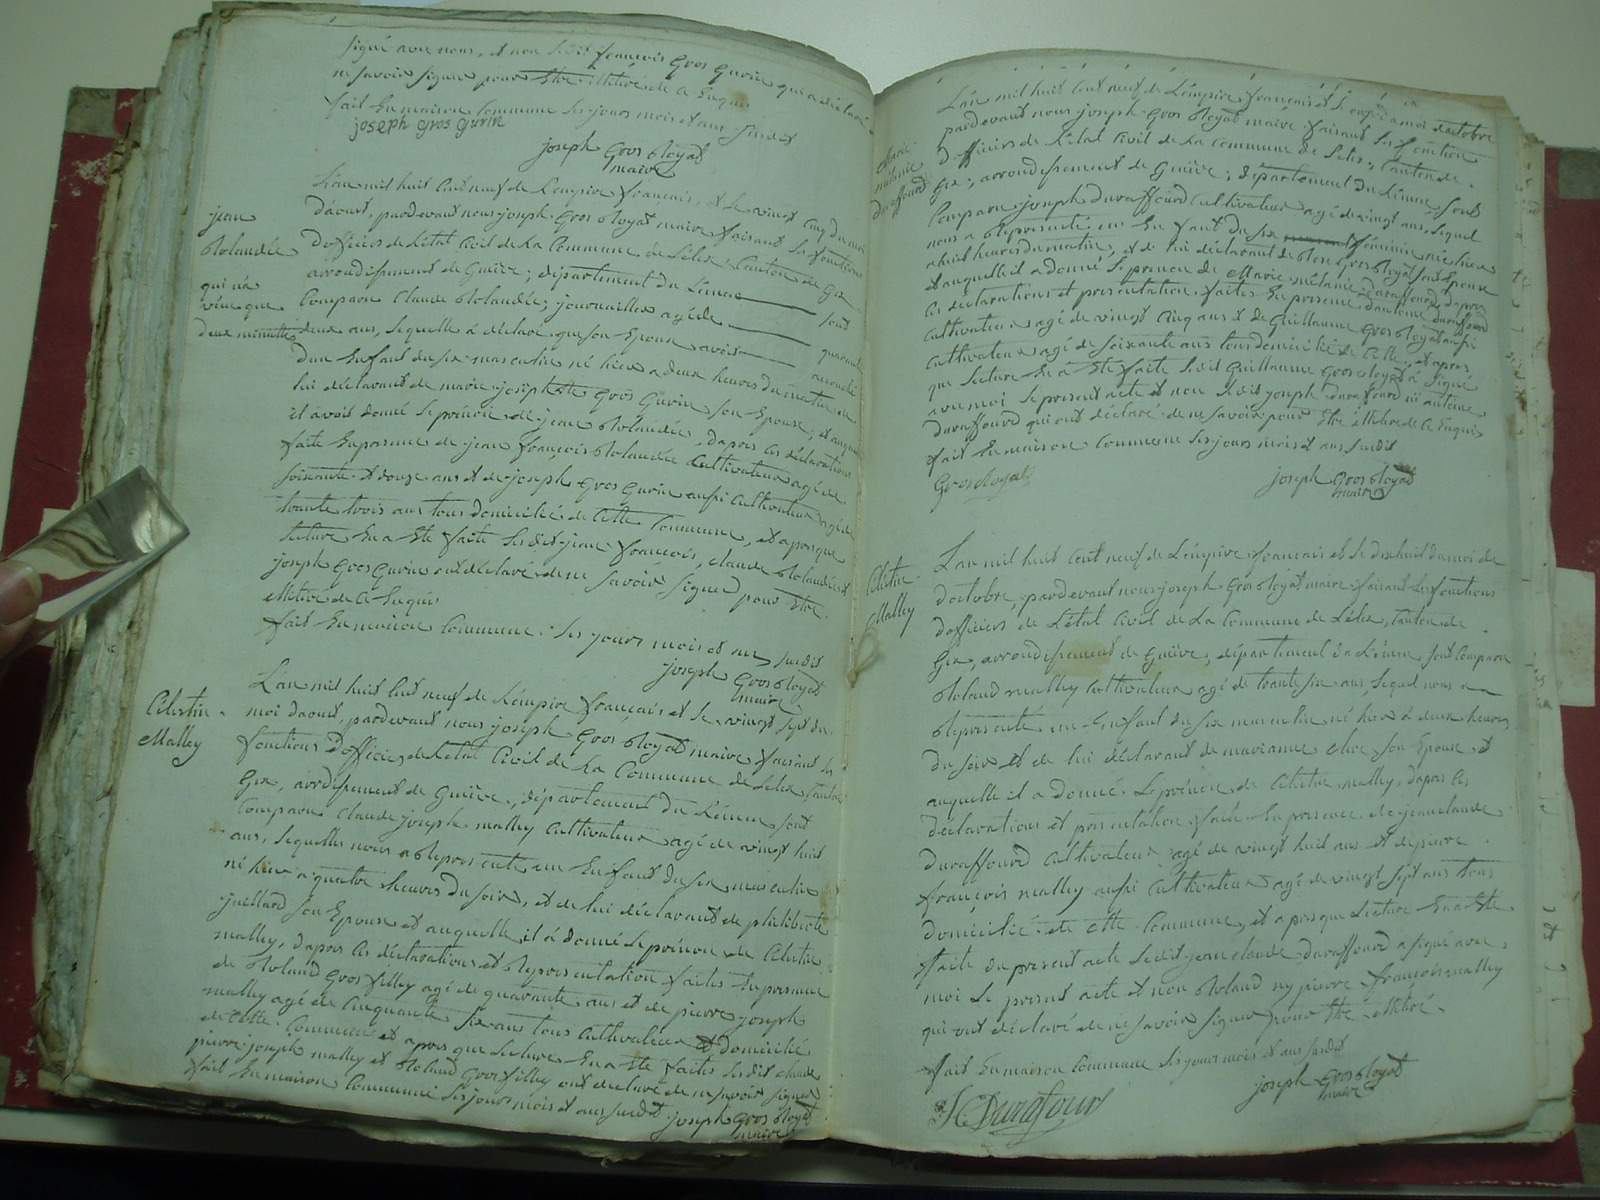 signé avec nous, et non ledit françois Gros Gurin qui a déclaré
ne savoir signer pour Etre illitéré de ce Enquis
fait En maison Commune les jours mois et ans susdit
joseph Gros Gurin
joseph Gros Royat
maire
jean
Rolandée
qui n'a
vécu que
deux minutte
L'an mil huit Cent neuf de L'empire français, et le vingt Cinq du moi
daoust, pardevant nous joseph Gros Royat maire faisant les fonctions
D'officiers de L'état Civil de La Commune de Lélex, Canton de Gex
arrondisement de Genève; département du Léman
Compson Claude Rolandée; journaillier agé de quarante
deux ans, lequelle à déclaré que son Epouse avoit
D'un Enfant du sex masculin né hier a deux heures du matin de
lui déclarant de marie josephte Gros Gurin son Epouse; et auquel
il avoit donné le prénom de jean Rolandée, dapres les déclaration
faite En presence de jean françois Rolandée Cultivateur agé de
soixante et douze ans et de joseph Gros Gurin aussi Cultivateur agé de
trante trois ans tous domicilié de Cette Commune, et apres que
lecture En a Eté faite lesdit jean françois, claude Rolandée et
joseph Gros Gurin ont déclaré de ne savoir signer pour Etre
illitéré de ce Enquis
fait En maison Commune: les jours mois et ans susdit
joseph Gros Royat
maire
Celestin
Malley
L'an mil huit Cent neuf de L'empire français et le vingt sept du
moi daoust, pardevant nous joseph Gros Royat maire faisant les
fonctions D'officiers de L'état Civil de La Commune de Lelex, Canton
Gex, arrondisement de Genève, département du Léman sont
Comparu Claude joseph malley Cultivateur agé de vingt huit
ans, lequelle nous a Représenté un Enfant du sex masculin
né hier a quatre heures du soire, et de lui déclarant de philiberte
juillard son Epouse et auquelle il à donné le prénom de Celestin
malley, dapres les déclarations et Représentation faites En presence
de Roland Gros filley agé de quarante ans et de pierre joseph
malley agé de Cinquante six ans tous Cultivateur et domicilié
de Cette Commune et apres que lecture En a Eté faites lesdit claude
pierre joseph malley et Roland Gros filley ont déclaré de ne savoir signer
fait En maison Commune les jours mois et ans susdit joseph Gros Royat
maire
Marie
mélanie
Duraffourd
L'an mil huit Cent neuf de L'empire français et le du moi doctobre
pardevant nous joseph Gros Royat maire faisant les fonction
D'officiers de L'état Civil de La Commune de Lelex, Canton de
Gex, arrondisement de Genève; département du Léman, sont
Comparu joseph Duraffourd Cultivateur agé de vingt ans, lequel
nous a Représenté un Enfant du sex féminin né hier
a huit heures du matin, et de lui déclarant de Gros Royat son Epouse
et auquelle il a donné le prénom de Marie mélanie Duraffourd dapres
les déclarations et présentation faites En presence dantoine Duraffourd
Cultivateur agé de vingt Cinq ans et de Guillaume Gros Royat aussi
Cultivateur agé de soixante ans tous domicilié de Cette, et apres
que lecture En a Eté faite ledit Guillaume Gros Royat à signé
avec moi le présent acte et non ledit joseph Duraffourd ni antoine
Duraffourd qui ont déclaré de ne savoir pour Etre illitéré de ce Enquis
fait En maison Commune les jours mois et ans susdit
Gros Royat
joseph Gros Royat
maire
Celestin
Malley
L'an mil huit Cent neuf de L'empire français et le dix huit du moi de
doctobre, pardevant nous joseph Gros Royat maire faisant les fonctions
d'officiers de L'état Civil de La Commune de Lélex, Canton de
Gex, arrondisement de Genève, département du Léman sont Comparu
Roland malley Cultivateur agé de trante six ans, lequel nous a
Représenté un Enfant du sex masculin né hier à deux heures
du soire et de lui déclarant de marianne son Epouse et
auquelle il a donné Le prénom de Celestin malley, dapres les
déclarations et présentation faite En presence de jean claude
Duraffourd Cultivateur agé de vingt huit ans et de pierre
françois malley aussi Cultivateur agé de vingt sept ans tous
domicilié de Cette Commune, et apres que Lecture En a Eté
faite du present acte ledit jean claude Duraffourd a signé avec
moi le présent acte et non Roland ny pierre françois malley
qui ont déclaré de ne savoir signer pour Etre illitéré
fait En maison Commune les jours mois et ans susdit
joseph Gros Royat
maire
JC Durafour